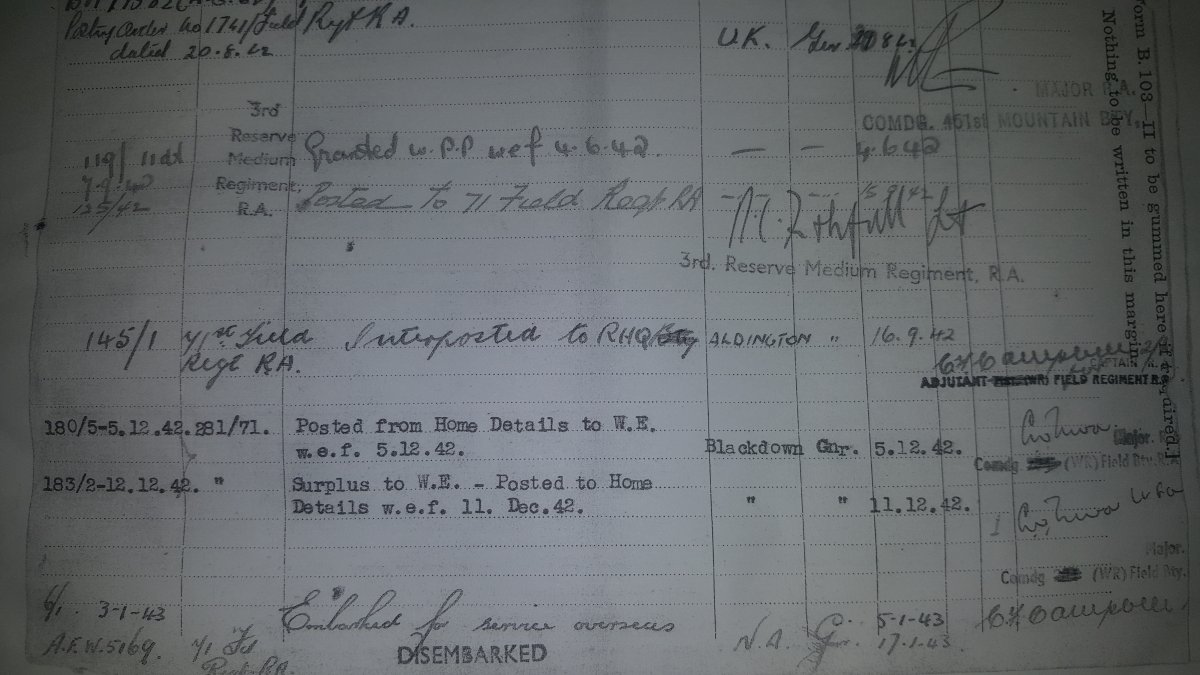 Posting Order No 1741/Field Regt R.A.
dated 20.8.42
U.K. Gnr 20 8 42
MAJOR R.A.
COMDG. 451st MOUNTAIN BTY.
3rd
Reserve
Medium
Regiment,
R.A.
119/ 11 dt
7.9.42
125/42
Granted W.P.P wef 4.6.42. — — 4.6.42
Posted To 71 Field Regt RA 5 9 42
Lt
3rd. Reserve Medium Regiment, R.A.
145/1 71st Field Interposted to RHQ ALDINGTON " 16.9.42
Regt RA.
CAPTAIN
ADJUTANT (WR) FIELD REGIMENT R.A.
180/5-5.12.42. 281/71. Posted from Home Details to W.E.
w.e.f. 5.12.42. Blackdown Gnr. 5.12.42.
Major. R.
Comdg (WR) Field Bty. R.A.
183/2-12.12.42. " Surplus to W.E. - Posted to Home
Details w.e.f. 11. Dec.42. " " 11.12.42.
Major.
Comdg (WR) Field Bty.
6/1. 3-1-43 Embarked for service overseas G. 5-1-43
A.F.W.5169. 71 Fd DISEMBARKED N.A. Gr. 17.1.43.
Regt. R.A.
orm B.103—II to be gummed here if required.]
Nothing to be written in this margin.